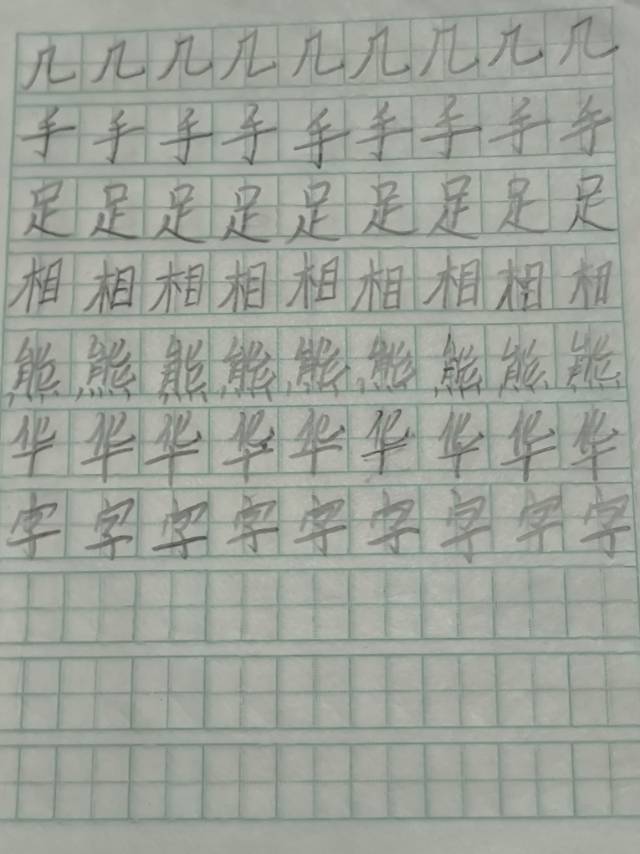 几几几几几几几几几
手手手手手手手手手
足足足足足足足足足
相相相相相相相相相
熊熊熊熊熊熊熊熊熊
华华华华华华华华华
字字字字字字字字字